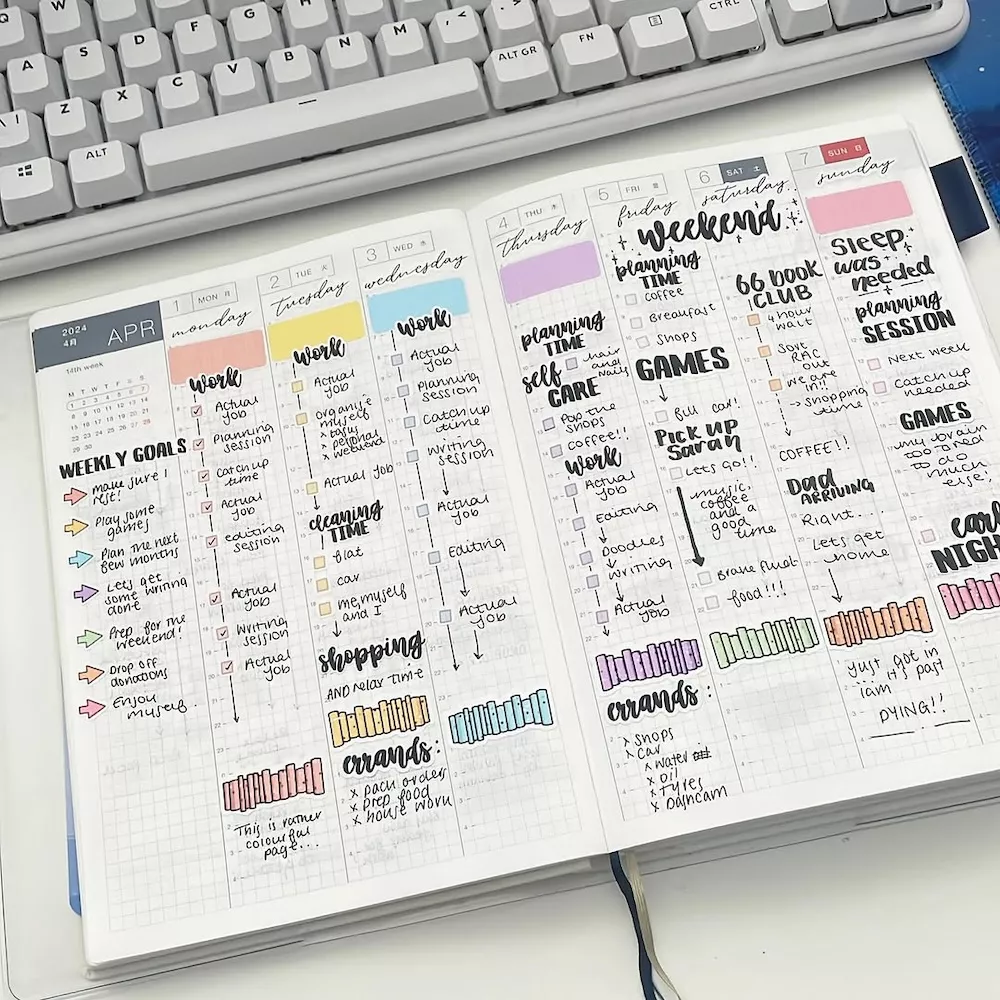 A
S
D
F
G
H
J
K
L
Z
X
C
V
B
N
M
ALT GR
FN
CTRL
ALT
2024
4月
APR
14th week
M T W T F S S
1 2 3 4 5 6 7
8 9 10 11 12 13 14
15 16 17 18 19 20 21
22 23 24 25 26 27 28
29 30
WEEKLY GOALS
make sure I
rest!
Play some
games
Plan the next
few months
Lets get
some writing
done
Prep for the
weekend!
Drop off
donations
Enjoy
myself.
1 MON
monday
work
Actual
job
Planning
session
Catch up
time
Actual
job
editing
session
Actual
job
Writing
session
Actual
job
This is rather
colourful
page...
2 TUE 火
tuesday
work
Actual
job
organise
myself
x tasks
x personal
x weekend
Actual job
cleaning
TIME
flat
car
me, myself
and I
shopping
AND relax time
errands:
x pack orders
x prep food
x house work
3 WED 水
wednesday
work
Actual
job
Planning
session
Catch up
time
Writing
session
Actual
job
Editing
Actual
job
4 THU 木
thursday
planning
TIME
hair
and
nails
self
CARE
Pop the
shops
coffee!!
work
Actual
job
Editing
Doodles
writing
Actual
job
errands:
x shops
x car
x water
x oil
x Tyres
x Dashcam
5 FRI 金
friday
weekend
planning
TIME
coffee
Breakfast
Shops
GAMES
fill car!
Pick up
Sarah
Lets go!!
music,
coffee
and a
good
time
Brake fluid
food!!!
6 SAT 土
saturday
66 book
CLUB
4 hour
wait
Sort
RAC
out
we are
in!!
-> shopping
time
COFFEE!!
Dad
ARRIVING
Right...
Lets get
home
Just got in
it's past
1am
DYING!!
7 SUN 日
sunday
Sleep
was
needed
+
planning
SESSION
Next week
catch up
needed
GAMES
my brain
too tired
to do
much
else!
early
NIGH